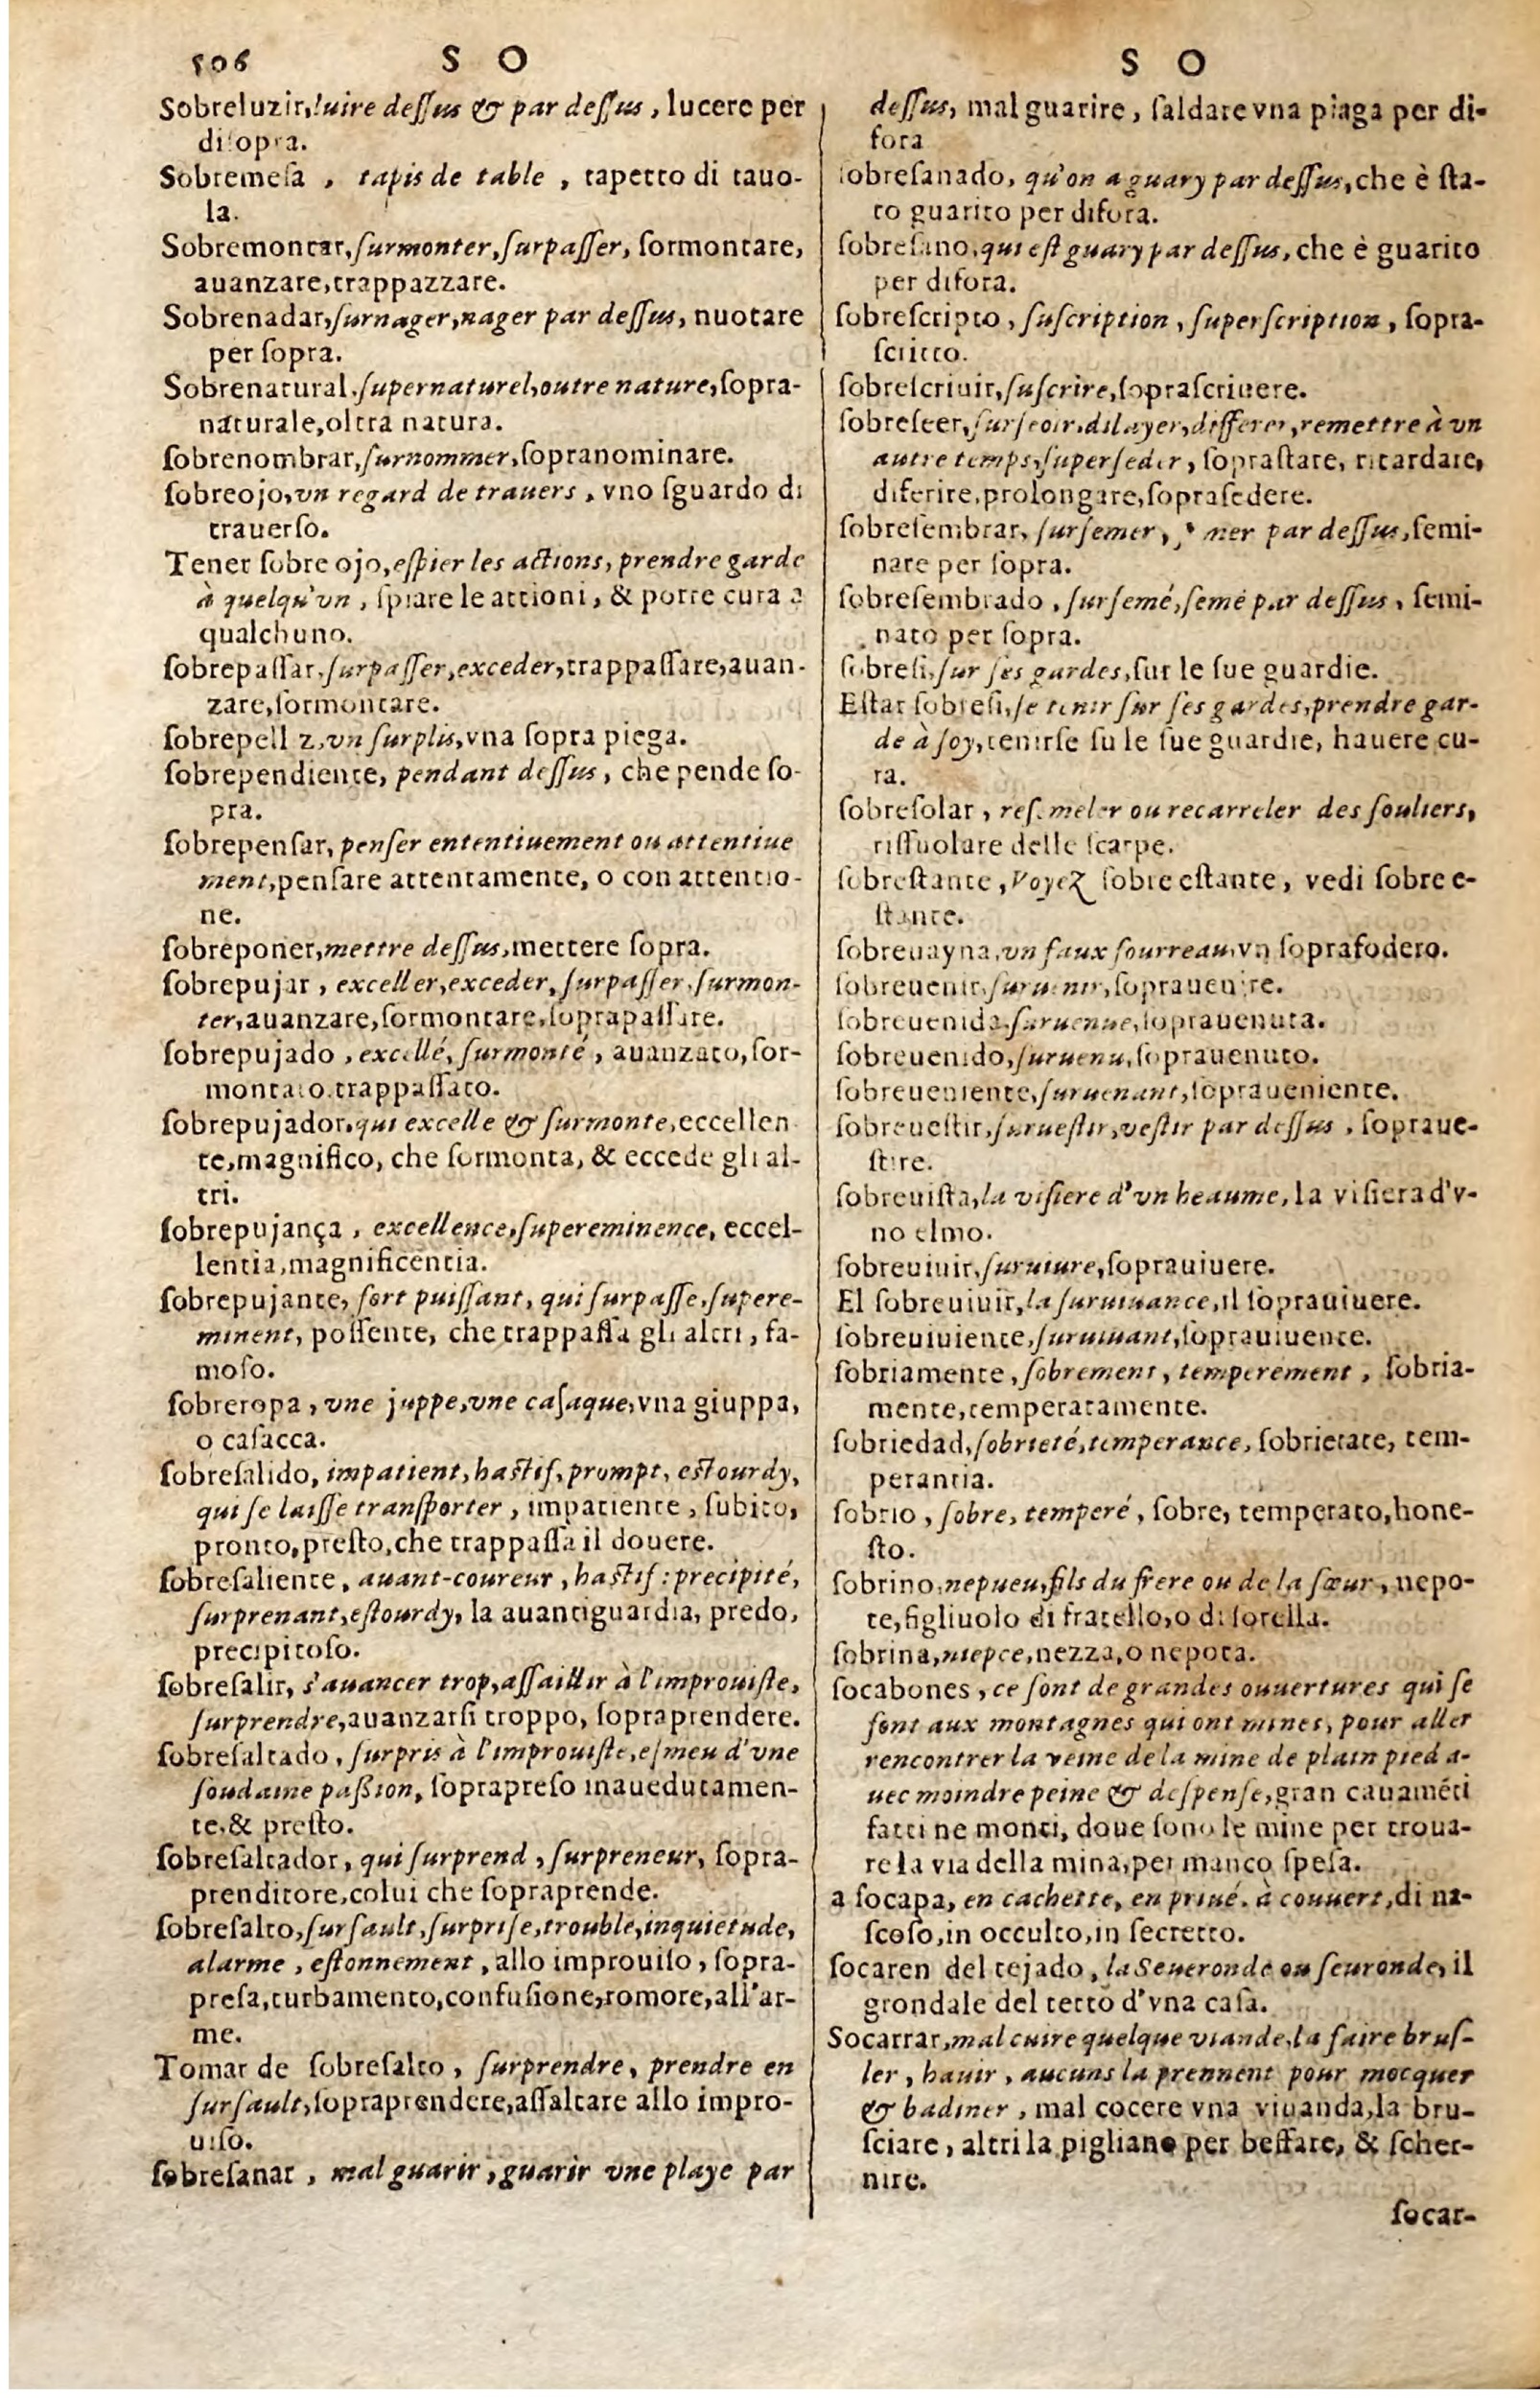 506 S O
Sobreluzir, luire deſſus & par deſſus, lucere per
diſopra.
Sobremeſa, tapis de table, tapetto di tauo-
la.
Sobremontar, ſurmonter, ſurpaſſer, ſormontare,
auanzare, trappazzare.
Sobrenadar, ſurnager, nager par deſſus, nuotare
per ſopra.
Sobrenatural, ſupernaturel, outre nature, ſopra-
naturale, oltra natura.
ſobrenombrar, ſurnommer, ſopranominare.
ſobreojo, vn regard de trauers, vno ſguardo di
trauerſo.
Tener ſobre ojo, eſpier les actions, prendre garde
à quelqu'vn, ſpiare le attioni, & porre cura a
qualchuno.
ſobrepaſſar, ſurpaſſer, exceder, trappaſſare, auan-
zare, ſormontare.
ſobrepell z, vn ſurplis, vna ſopra piega.
ſobrependiente, pendant deſſus, che pende ſo-
pra.
ſobrepenſar, penſer ententiuement ou attentiue
ment, penſare attentamente, o con attentio-
ne.
ſobreponer, mettre deſſus, mettere ſopra.
ſobrepujar, exceller, exceder, ſurpaſſer, ſurmon-
ter, auanzare, ſormontare, ſoprapaſſare.
ſobrepujado, excellé, ſurmonté, auanzato, ſor-
montato, trappaſſato.
ſobrepujador, qui excelle & ſurmonte, eccellen
te, magnifico, che ſormonta, & eccede gli al-
tri.
ſobrepujança, excellence, ſupereminence, eccel-
lentia, magnificentia.
ſobrepujante, fort puiſſant, qui ſurpaſſe, ſupere-
minent, poſſente, che trappaſſa gli altri, fa-
moſo.
ſobreropa, vne juppe, vne caſaque, vna giuppa,
o caſacca.
ſobreſalido, impatient, haſtif, prompt, eſtourdy,
qui ſe laiſſe tranſporter, impatiente, ſubito,
pronto, preſto, che trappaſſa il douere.
ſobreſaliente, auant-coureur, haſtif: precipité,
ſurprenant, eſtourdy, la auantiguardia, predo,
precipitoſo.
ſobreſalir, s'auancer trop, aſſaillir à l'improuiſte,
ſurprendre, auanzarſi troppo, ſopraprendere.
ſobreſaltado, ſurpris à l'improuiſte, eſmeu d'vne
ſoudaine paßion, ſoprapreſo inauedutamen-
te, & preſto.
ſobreſaltador, qui ſurprend, ſurpreneur, ſopra-
prenditore, colui che ſopraprende.
ſobreſalto, ſurſault, ſurpriſe, trouble, inquietude,
alarme, eſtonnement, allo improuiſo, ſopra-
preſa, turbamento, confuſione, romore, all'ar-
me.
Tomar de ſobreſalto, ſurprendre, prendre en
ſurſault, ſopraprendere, aſſaltare allo impro-
uiſo.
ſobreſanar, mal guarir, guarir vne playe par
S O
deſſus, mal guarire, ſaldare vna piaga per di-
fora
ſobreſanado, qu'on a guary par deſſus, che è ſta-
to guarito per difora.
ſobreſano, qui eſt guary par deſſus, che è guarito
per difora.
ſobreſcripto, ſuſcription, ſuperſcription, ſopra-
ſcritto.
ſobreſcriuir, ſuſcrire, ſopraſcriuere.
ſobreſeer, ſurſeoir, dilayer, differer, remettre à vn
autre temps, ſuperſeder, ſopraſtare, ritardare,
diferire, prolongare, ſopraſedere.
ſobreſembrar, ſurſemer, mer par deſſus, ſemi-
nare per ſopra.
ſobreſembrado, ſurſemé, ſemé par deſſus, ſemi-
nato per ſopra.
ſobreſi, ſur ſes gardes, ſur le ſue guardie.
Eſtar ſobreſi, ſe tenir ſur ſes gardes, prendre gar-
de à ſoy, tenirſe ſu le ſue guardie, hauere cu-
ra.
ſobreſolar, reſemeler ou recarreler des ſouliers,
riſſuolare delle ſcarpe.
ſobreſtante, Voyez ſobre eſtante, vedi ſobre e-
ſtante.
ſobreuayna, vn faux fourreau, vn ſoprafodero.
ſobreuenir, ſuruenir, ſoprauenire.
ſobreuenida, ſuruenue, ſoprauenuta.
ſobreuenido, ſuruenu, ſoprauenuto.
ſobreueniente, ſuruenant, ſopraueniente.
ſobreueſtir, ſurueſtir, veſtir par deſſus, ſopraue-
ſtire.
ſobreuiſta, la viſiere d'vn heaume, la viſiera d'v-
no elmo.
ſobreuiuir, ſuruiure, ſoprauiuere.
El ſobreuiuir, la ſuruiuance, il ſoprauiuere.
ſobreuiuiente, ſuruiuant, ſoprauiuente.
ſobriamente, ſobrement, temperement, ſobria-
mente, temperatamente.
ſobriedad, ſobrieté, temperance, ſobrietate, tem-
perantia.
ſobrio, ſobre, temperé, ſobre, temperato, hone-
ſto.
ſobrino, nepueu, fils du frere ou de la ſœur, nepo-
te, figliuolo di fratello, o di ſorella.
ſobrina, niepce, nezza, o nepota.
ſocabones, ce ſont de grandes ouuertures qui ſe
font aux montagnes qui ont mines, pour aller
rencontrer la veine de la mine de plain pied a-
uec moindre peine & deſpenſe, gran cauaméti
fatti ne monti, doue ſono le mine per troua-
re la via della mina, per manco ſpeſa.
a ſocapa, en cachette, en priué, à couuert, di na-
ſcoſo, in occulto, in ſecretto.
ſocaren del tejado, la Seueronde ou ſeuronde, il
grondale del tetto d'vna caſa.
Socarrar, mal cuire quelque viande, la faire bruſ-
ler, hauir, aucuns la prennent pour mocquer
& badiner, mal cocere vna viuanda, la bru-
ſciare, altri la pigliano per beffare, & ſcher-
nire.
ſocar-